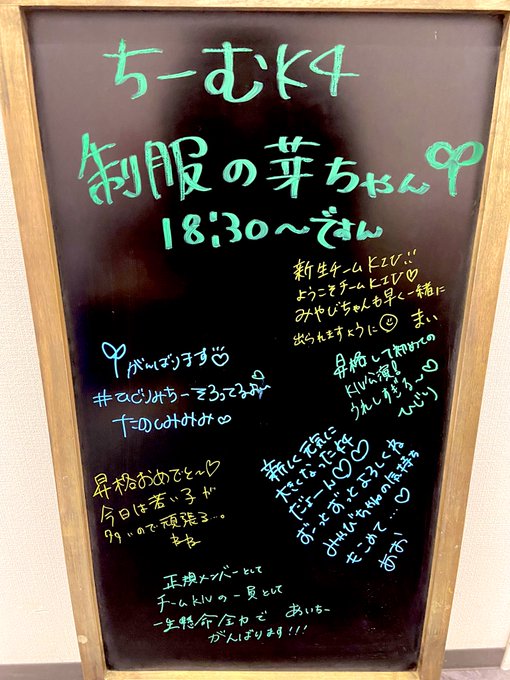 ちーむK4
制服の芽ちゃん
18:30〜ですん
新生チームKⅣ!!
ようこそチームKⅣ♡
みやびちゃんも早く一緒に
出られますように☺ まい
がんばります♡
#ひじりみちーそろってるよ〜
たのしみみみ♡
昇格して初めての
KⅣ公演!
うれしすぎる〜♡
ひじり
昇格おめでと〜♡
今日は若い子が
多いので頑張る…。
新しく元気に
大きくなったK4
だよーん♡♡
ずーっとずっとよろしくね
みやびちゃんの気持ち
をこめて…♡
あお
正規メンバーとして
チームKⅣの一員として
一生懸命全力で あいちー
がんばります!!!